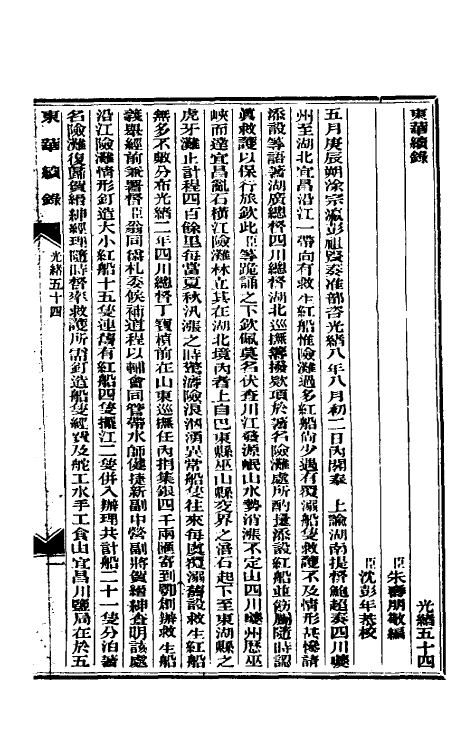 東華續錄
光緒五十四
臣朱壽朋敬編
臣沈彭年恭校
五月庚辰朔涂宗瀛彭祖賢奏准部咨光緒八年八月初二日內閣奉 上諭湖南提督鮑超奏四川夔
州至湖北宜昌沿江一帶向有救生紅船惟險灘過多紅船尚少遇有覆溺船隻救護不及情形甚慘請
添設等語著湖廣總督四川總督湖北巡撫籌撥款項於著名險灘處所酌量添設紅船並飭屬隨時認
真救護以保行旅欽此臣等跪誦之下欽佩莫名伏查川江發源岷山水勢消漲不定由四川夔州歷巫
峽而達宜昌亂石橫江險灘林立其在湖北境內者上自巴東縣巫山縣交界之涪石起下至東湖縣之
虎牙灘止計程四百餘里每當夏秋汛漲之時幫灘險浪洶湧異常船隻往來每虞覆溺舊設救生紅船
無多不敷分布光緒二年四川總督丁寶楨前在山東巡撫任內捐集銀四千兩匯寄到鄂創辦救生船
義舉經前兼署督臣翁同爵札委候補道程以輔會同管帶水師健捷新副中營副將賀縉紳查明該處
沿江險灘情形釘造大小紅船十五隻連舊有紅船四隻擺江二隻併入辦理共計船二十一隻分泊著
名險灘復飭賀縉紳經理隨時督率救護所需釘造船隻經費及舵工水手工食由宜昌川鹽局在於五
東華續錄
光緒五十四
一